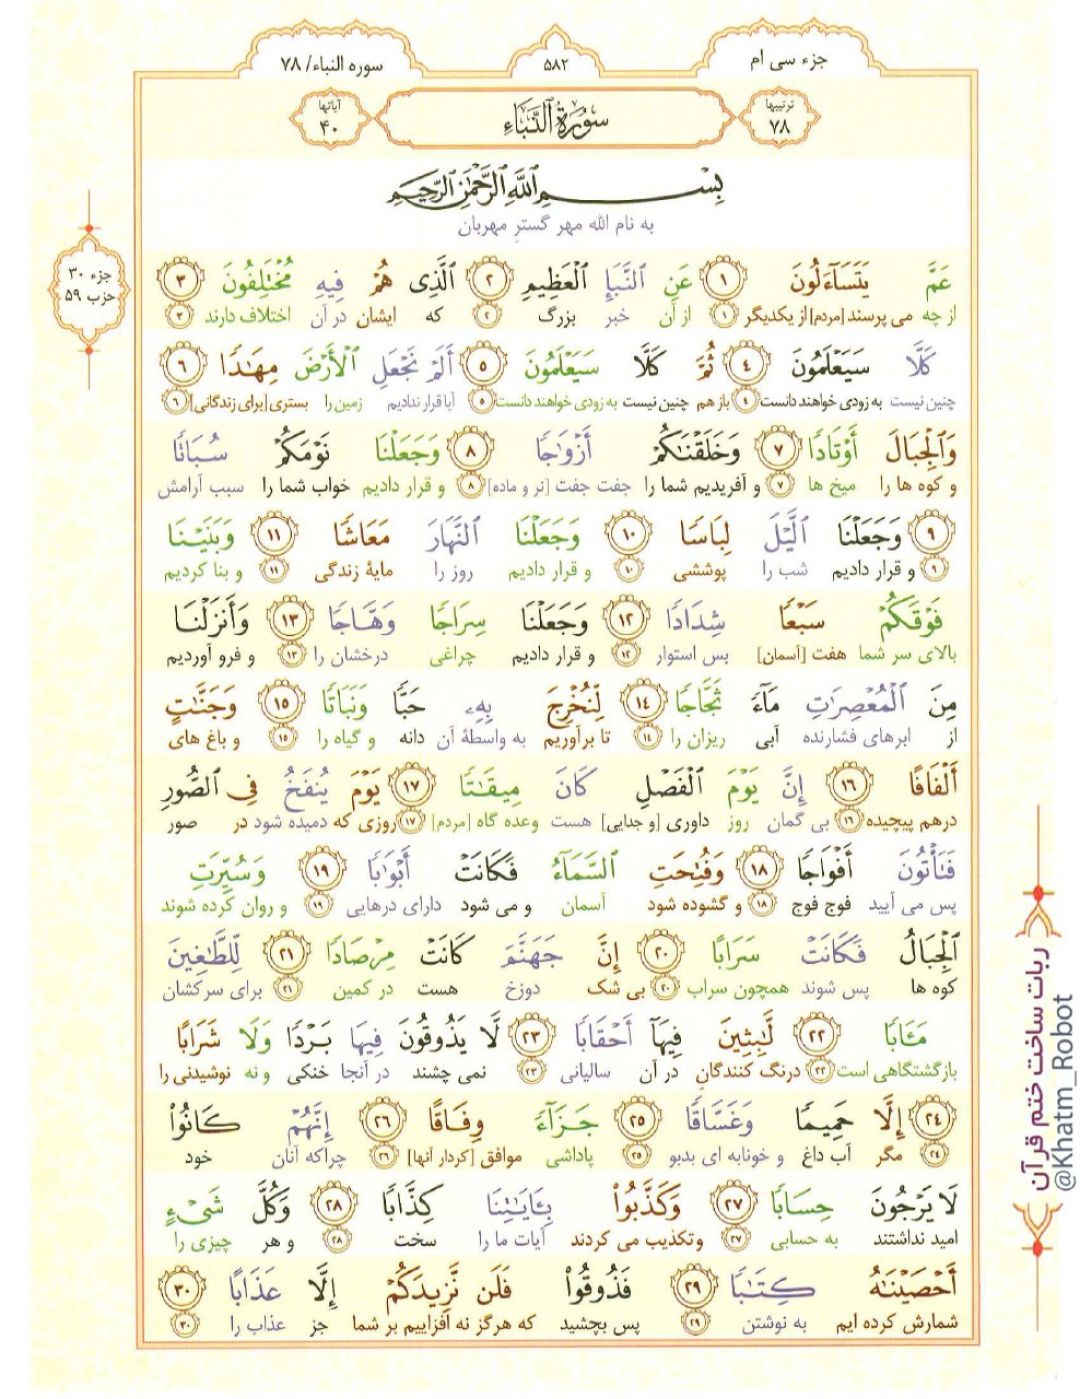 جزء سی ام
۵۸۲
سوره النباء/ ۷۸
ترتیبها ۷۸
سُورَةُ ٱلنَّبَاءِ
آیاتها ۴۰
بِسْمِ ٱللَّهِ ٱلرَّحْمَٰنِ ٱلرَّحِيمِ
به نام الله مهر گسترِ مهربان
جزء ۳۰
حزب ۵۹
عَمَّ يَتَسَآءَلُونَ ۱ عَنِ ٱلنَّبَإِ ٱلْعَظِيمِ ۲ ٱلَّذِى هُمْ فِيهِ مُخْتَلِفُونَ ۳
از چه می پرسند [مردم] از یکدیگر ۱ از آن خبر بزرگ ۲ که ایشان در آن اختلاف دارند ۳
كَلَّا سَيَعْلَمُونَ ۴ ثُمَّ كَلَّا سَيَعْلَمُونَ ۵ أَلَمْ نَجْعَلِ ٱلْأَرْضَ مِهَٰدًا ۶
چنین نیست به زودی خواهند دانست ۴ باز هم چنین نیست به زودی خواهند دانست ۵ آیا قرار ندادیم زمین را بستری [برای زندگانی] ۶
وَٱلْجِبَالَ أَوْتَادًا ۷ وَخَلَقْنَٰكُمْ أَزْوَٰجًا ۸ وَجَعَلْنَا نَوْمَكُمْ سُبَاتًا
و کوه ها را میخ ها ۷ و آفریدیم شما را جفت جفت [نر و ماده] ۸ و قرار دادیم خواب شما را سبب آرامش
۹ وَجَعَلْنَا ٱلَّيْلَ لِبَاسًا ۱۰ وَجَعَلْنَا ٱلنَّهَارَ مَعَاشًا ۱۱ وَبَنَيْنَا
۹ و قرار دادیم شب را پوششی ۱۰ و قرار دادیم روز را مایهٔ زندگی ۱۱ و بنا کردیم
فَوْقَكُمْ سَبْعًا شِدَادًا ۱۲ وَجَعَلْنَا سِرَاجًا وَهَّاجًا ۱۳ وَأَنزَلْنَا
بالای سر شما هفت [آسمان] بس استوار ۱۲ و قرار دادیم چراغی درخشان را ۱۳ و فرو آوردیم
مِنَ ٱلْمُعْصِرَٰتِ مَآءً ثَجَّاجًا ۱۴ لِّنُخْرِجَ بِهِۦ حَبًّا وَنَبَاتًا ۱۵ وَجَنَّٰتٍ
از ابرهای فشارنده آبی ریزان را ۱۴ تا برآوریم به واسطهٔ آن دانه و گیاه را ۱۵ و باغ های
أَلْفَافًا ۱۶ إِنَّ يَوْمَ ٱلْفَصْلِ كَانَ مِيقَٰتًا ۱۷ يَوْمَ يُنفَخُ فِى ٱلصُّورِ
درهم پیچیده ۱۶ بی گمان روز داوری [و جدایی] هست وعده گاه [مردم] ۱۷ روزی که دمیده شود در صور
فَتَأْتُونَ أَفْوَاجًا ۱۸ وَفُتِحَتِ ٱلسَّمَآءُ فَكَانَتْ أَبْوَٰبًا ۱۹ وَسُيِّرَتِ
پس می آیید فوج فوج ۱۸ و گشوده شود آسمان و می شود دارای درهایی ۱۹ و روان کرده شوند
ٱلْجِبَالُ فَكَانَتْ سَرَابًا ۲۰ إِنَّ جَهَنَّمَ كَانَتْ مِرْصَادًا ۲۱ لِّلطَّٰغِينَ
کوه ها پس شوند همچون سراب ۲۰ بی شک دوزخ هست در کمین ۲۱ برای سرکشان
مَـَٔابًا ۲۲ لَّٰبِثِينَ فِيهَآ أَحْقَابًا ۲۳ لَّا يَذُوقُونَ فِيهَا بَرْدًا وَلَا شَرَابًا
بازگشتگاهی است ۲۲ درنگ کنندگانِ در آن سالیانی ۲۳ نمی چشند در آنجا خنکی و نه نوشیدنی را
۲۴ إِلَّا حَمِيمًا وَغَسَّاقًا ۲۵ جَزَآءً وِفَاقًا ۲۶ إِنَّهُمْ كَانُوا۟
۲۴ مگر آب داغ و خونابه ای بدبو ۲۵ پاداشی موافق [کردار آنها] ۲۶ چراکه آنان خود
لَا يَرْجُونَ حِسَابًا ۲۷ وَكَذَّبُوا۟ بِـَٔايَٰتِنَا كِذَّابًا ۲۸ وَكُلَّ شَىْءٍ
امید نداشتند به حسابی ۲۷ و تکذیب می کردند آیات ما را سخت ۲۸ و هر چیزی را
أَحْصَيْنَٰهُ كِتَٰبًا ۲۹ فَذُوقُوا۟ فَلَن نَّزِيدَكُمْ إِلَّا عَذَابًا ۳۰
شمارش کرده ایم به نوشتن ۲۹ پس بچشید که هرگز نه افزاییم بر شما جز عذاب را ۳۰
ربات ساخت ختم قرآن
@Khatm_Robot